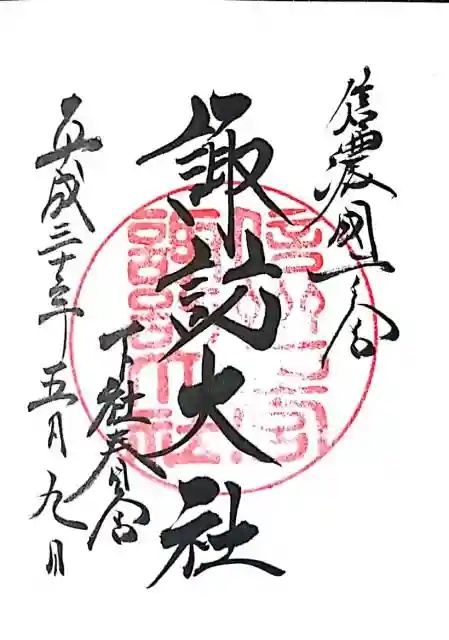 信濃國一之宮
諏訪大社
下社春宮
平成三十年五月九日